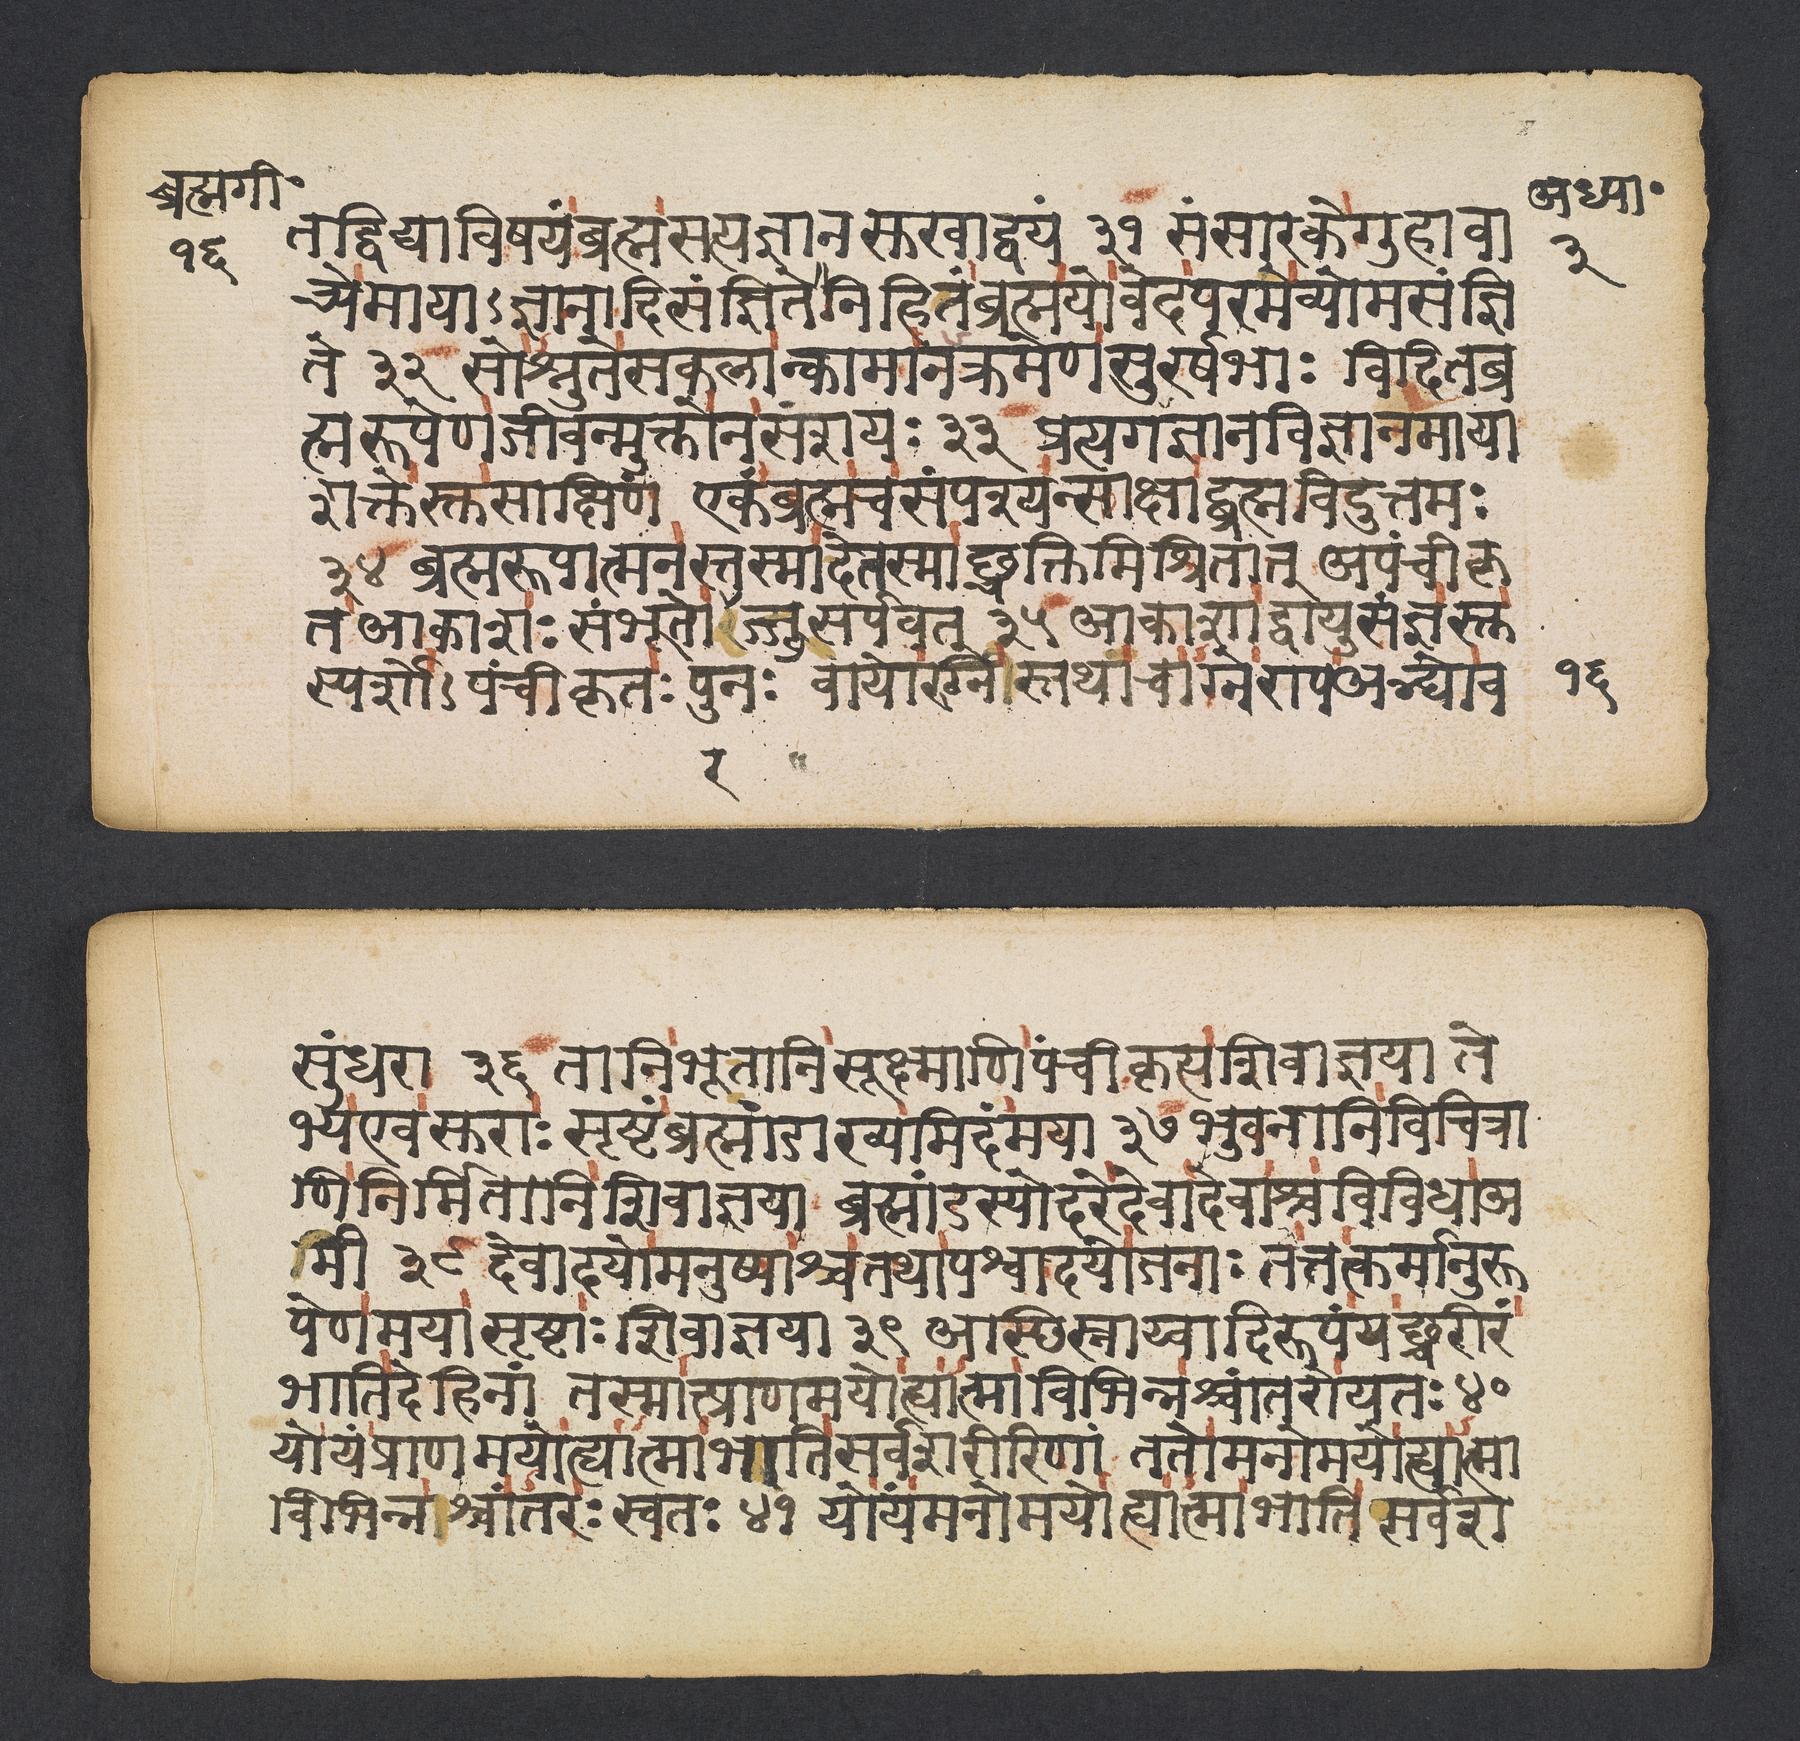 ब्रह्मगी॰
१६
अध्या॰
३
तद्विद्याविषयंब्रह्मसत्यज्ञानसुखाद्वयं ३१ संसारकेगुहावा
च्येमायाऽज्ञानादिसंज्ञितेनिहितंब्रह्मयोवेदपरमेव्योमसंज्ञि
ते ३२ सोश्नुतेसकलान्कामानक्रमेणसुरर्षभाः विदितब्र
ह्मरूपेणजीवन्मुक्तोनसंशयः ३३ प्रत्यगज्ञानविज्ञानमाया
शक्तेस्तुसाक्षिणं एकंब्रह्मचसंपश्यन्साक्षाद्ब्रह्मविदुत्तमः
३४ ब्रह्मरूपात्मनस्तस्मादेतस्माछक्तिमिश्रितात् अपंचीकृ
तआकाशः संभूतोज्जुसर्पवत् ३५ आकाशाद्वायुसंज्ञस्तु
स्पर्शोऽपंचीकृतः पुनः वायोरग्निस्तथाचाग्नेरापअद्भ्योव
१६
र
सुंधरा ३६ तानिभूतानिसूक्ष्माणिपंचीकृत्यशिवाज्ञया ते
भ्यएवसुराः सृष्टंब्रह्मांडाख्यमिदंमया ३७ भुवनानिविचित्रा
णिनिर्मितानिशिवाज्ञया ब्रह्मांडस्योदरेदेवादेवाश्चविविधाअ
मी ३८ देवादयोमनुष्याश्चतथापश्वादयोजनाः तत्तत्कर्मानुरू
पेणमयासृष्टाः शिवाज्ञया ३९ अास्छिस्नाय्वादिरूपंयछरीरं
भातिदेहिनां तस्मात्प्राणमयोह्यात्माविभिन्नश्चांतरोयतः ४०
योयंप्राणमयोह्यात्माभातिसर्वशरीरिणां ततोमनोमयोह्यात्मा
विभिन्नश्चांतरः स्वतः ४१ योयंमनोमयोह्यात्माभातिसर्वश